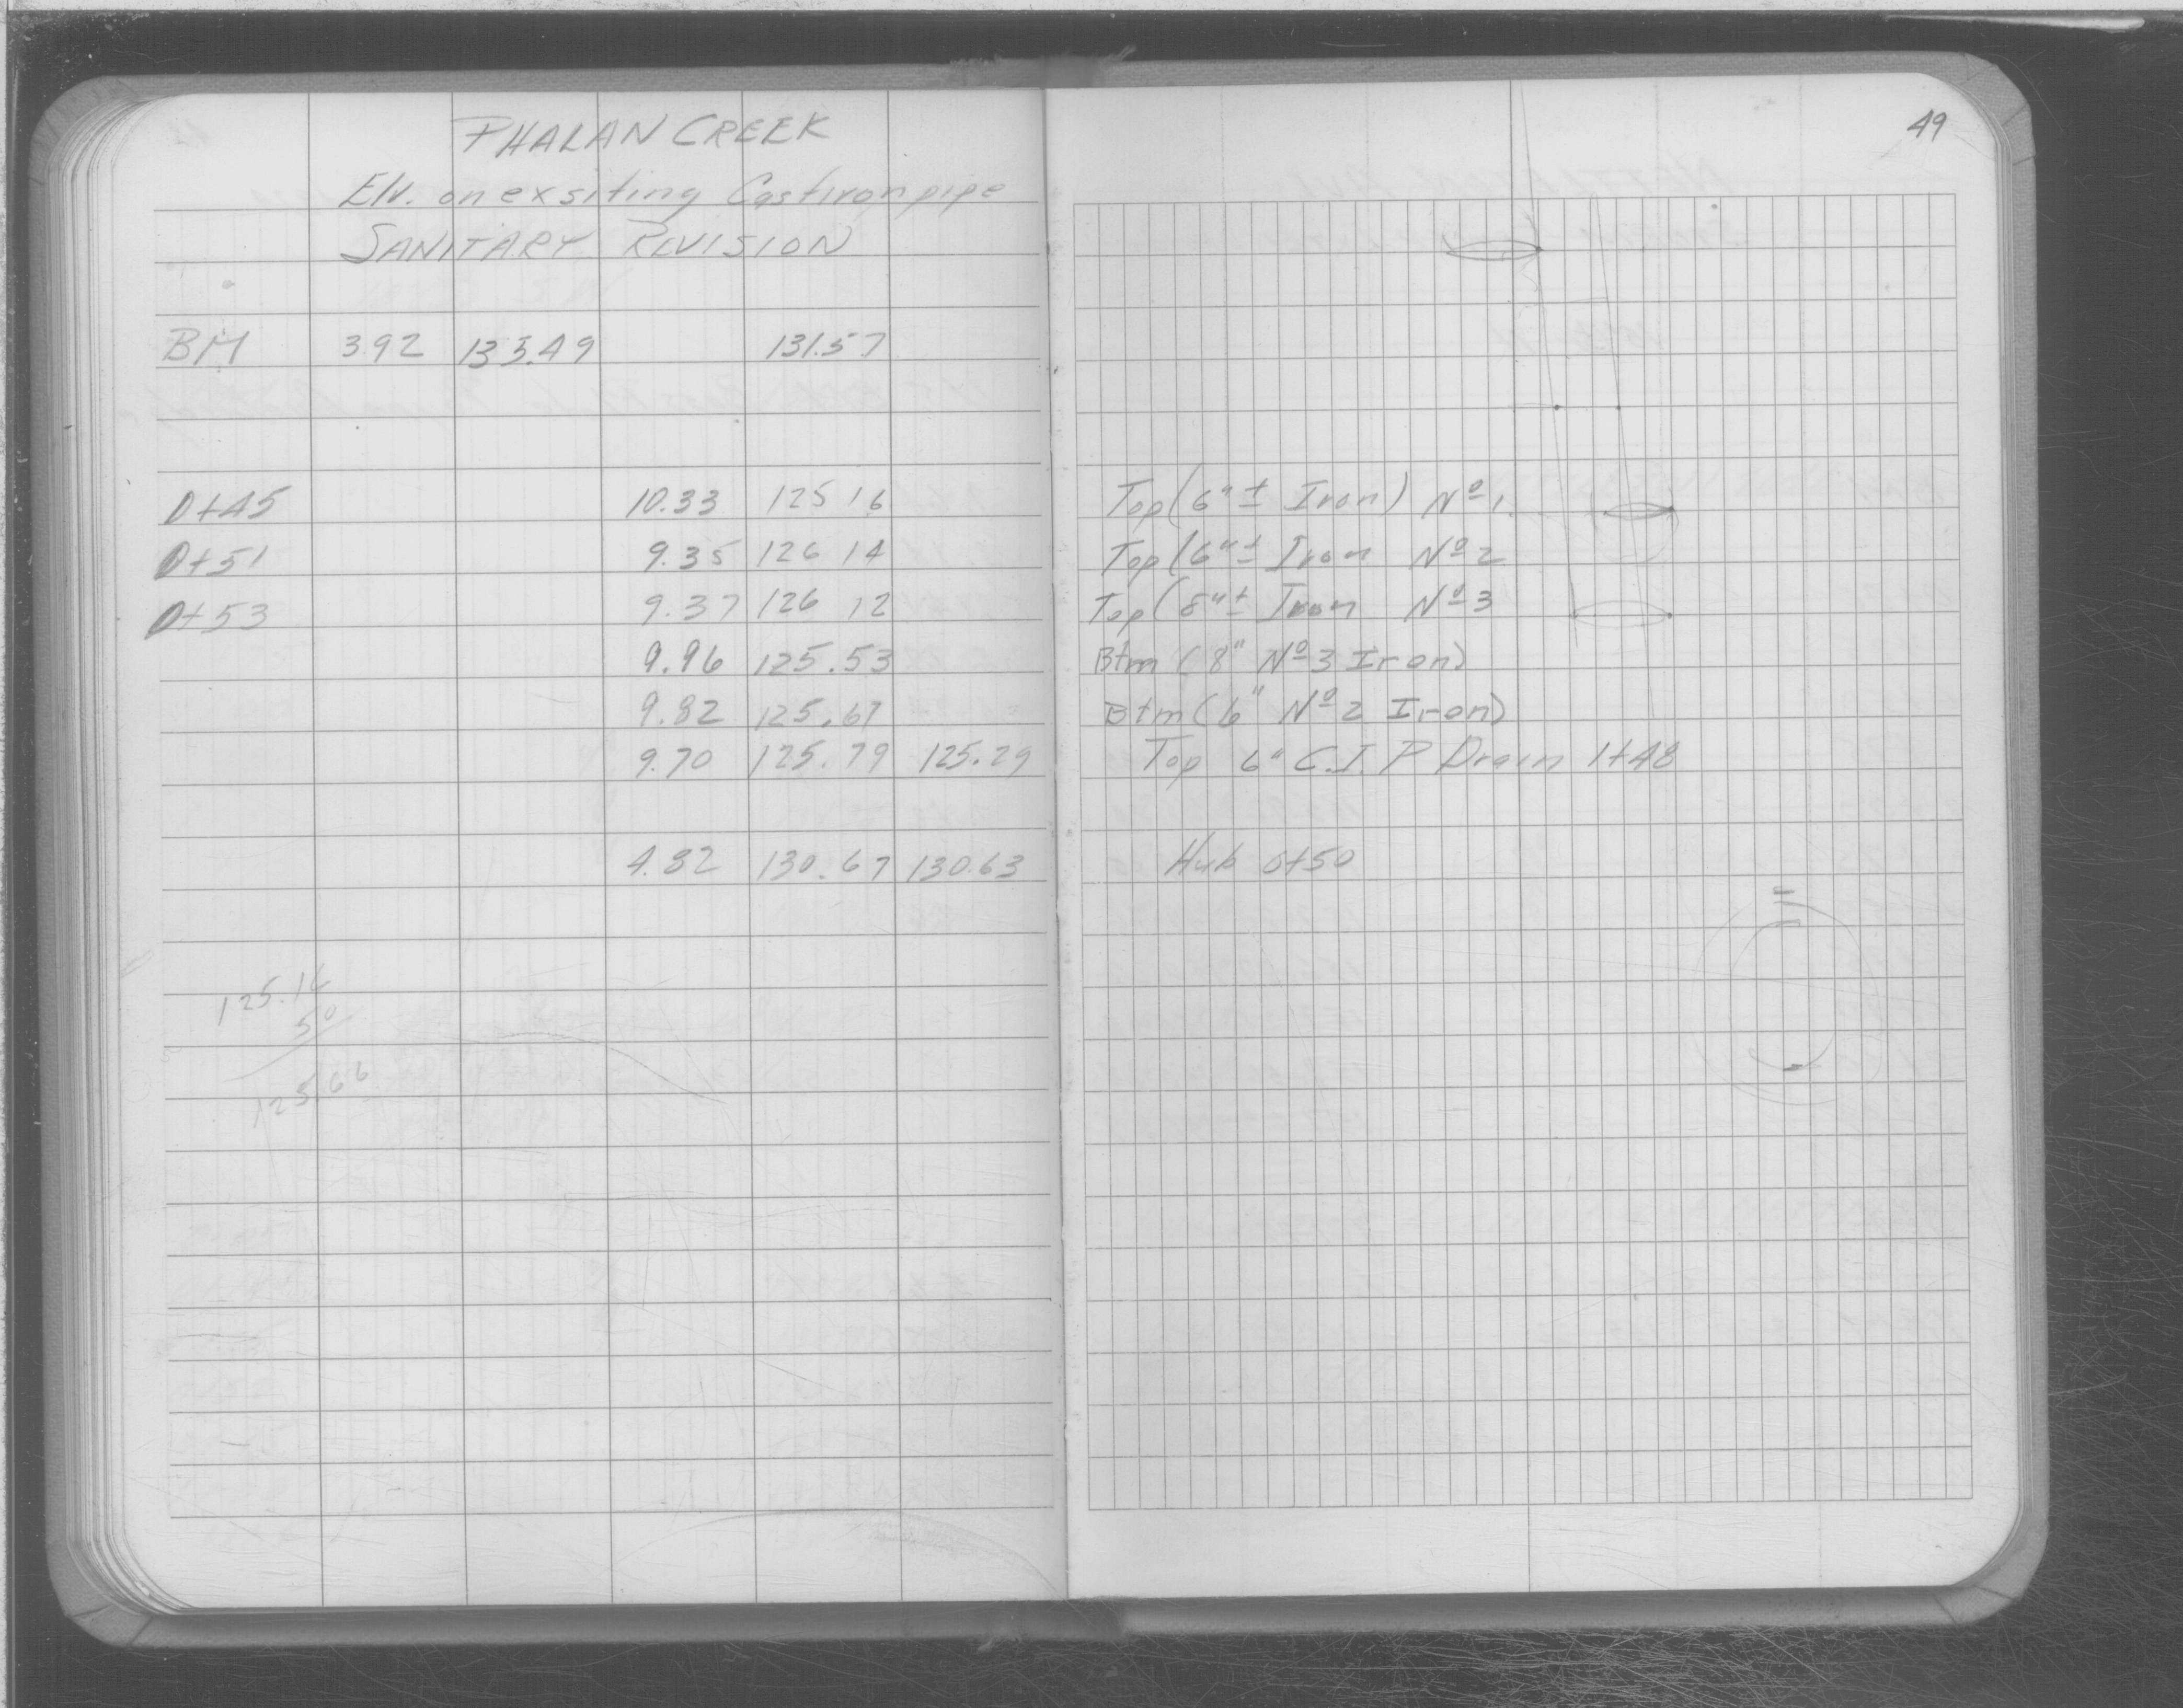 PHALAN CREEK
49
Elv. on exsiting Castiron pipe
SANITARY REVISION
BM 3.92 135.49 131.57
0+45 10.33 125 16 Top (6" ± Iron) Nº 1
0+51 9.35 126 14 Top (6" ± Iron Nº 2
0+53 9.37 126 12 Top (8" ± Iron Nº 3
9.96 125.53 Btm (8" Nº 3 Iron)
9.82 125.67 Btm (6" Nº 2 Iron)
9.70 125.79 125.29 Top 6" C.I.P Drain 1+48
4.82 130.67 130.63 Hub 0+50
125.16
50
125.66